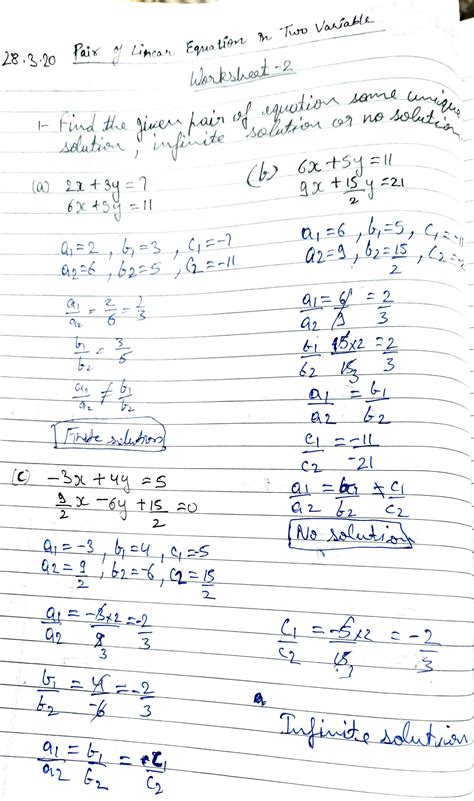 28.3.20 Pair of Linear Equation in Two Variable
Worksheet-2
1- Find the given pair of equation some unique
solution, infinite solution or no solution.
(a) 2x+3y=7
6x+5y=11
a1=2, b1=3, c1=-7
a2=6, b2=5, c2=-11
a1/a2 = 2/6 = 2/3
b1/b2 = 3/5
a1/a2 ≠ b1/b2
Finite solution
(b) 6x+5y=11
9x+15/2y=21
a1=6, b1=5, c1=-11
a2=9, b2=15/2, c2=
a1/a2 = 6/9 = 2/3
b1/b2 15×2/15 3 = 2/3
a1/a2 = b1/b2
c1/c2 = -11/-21
a1/a2 = b1/b2 ≠ c1/c2
No solution
(c) -3x+4y=5
9/2x-6y+15/2=0
a1=-3, b1=4, c1=-5
a2=9/2, b2=-6, c2=15/2
a1/a2 = -3×2/9 3 = -2/3
b1/b2 = 4/-6 = -2/3
a1/a2 = b1/b2 = c1/c2
c1/c2 = -5×2/15 3 = -2/3
Infinite solution